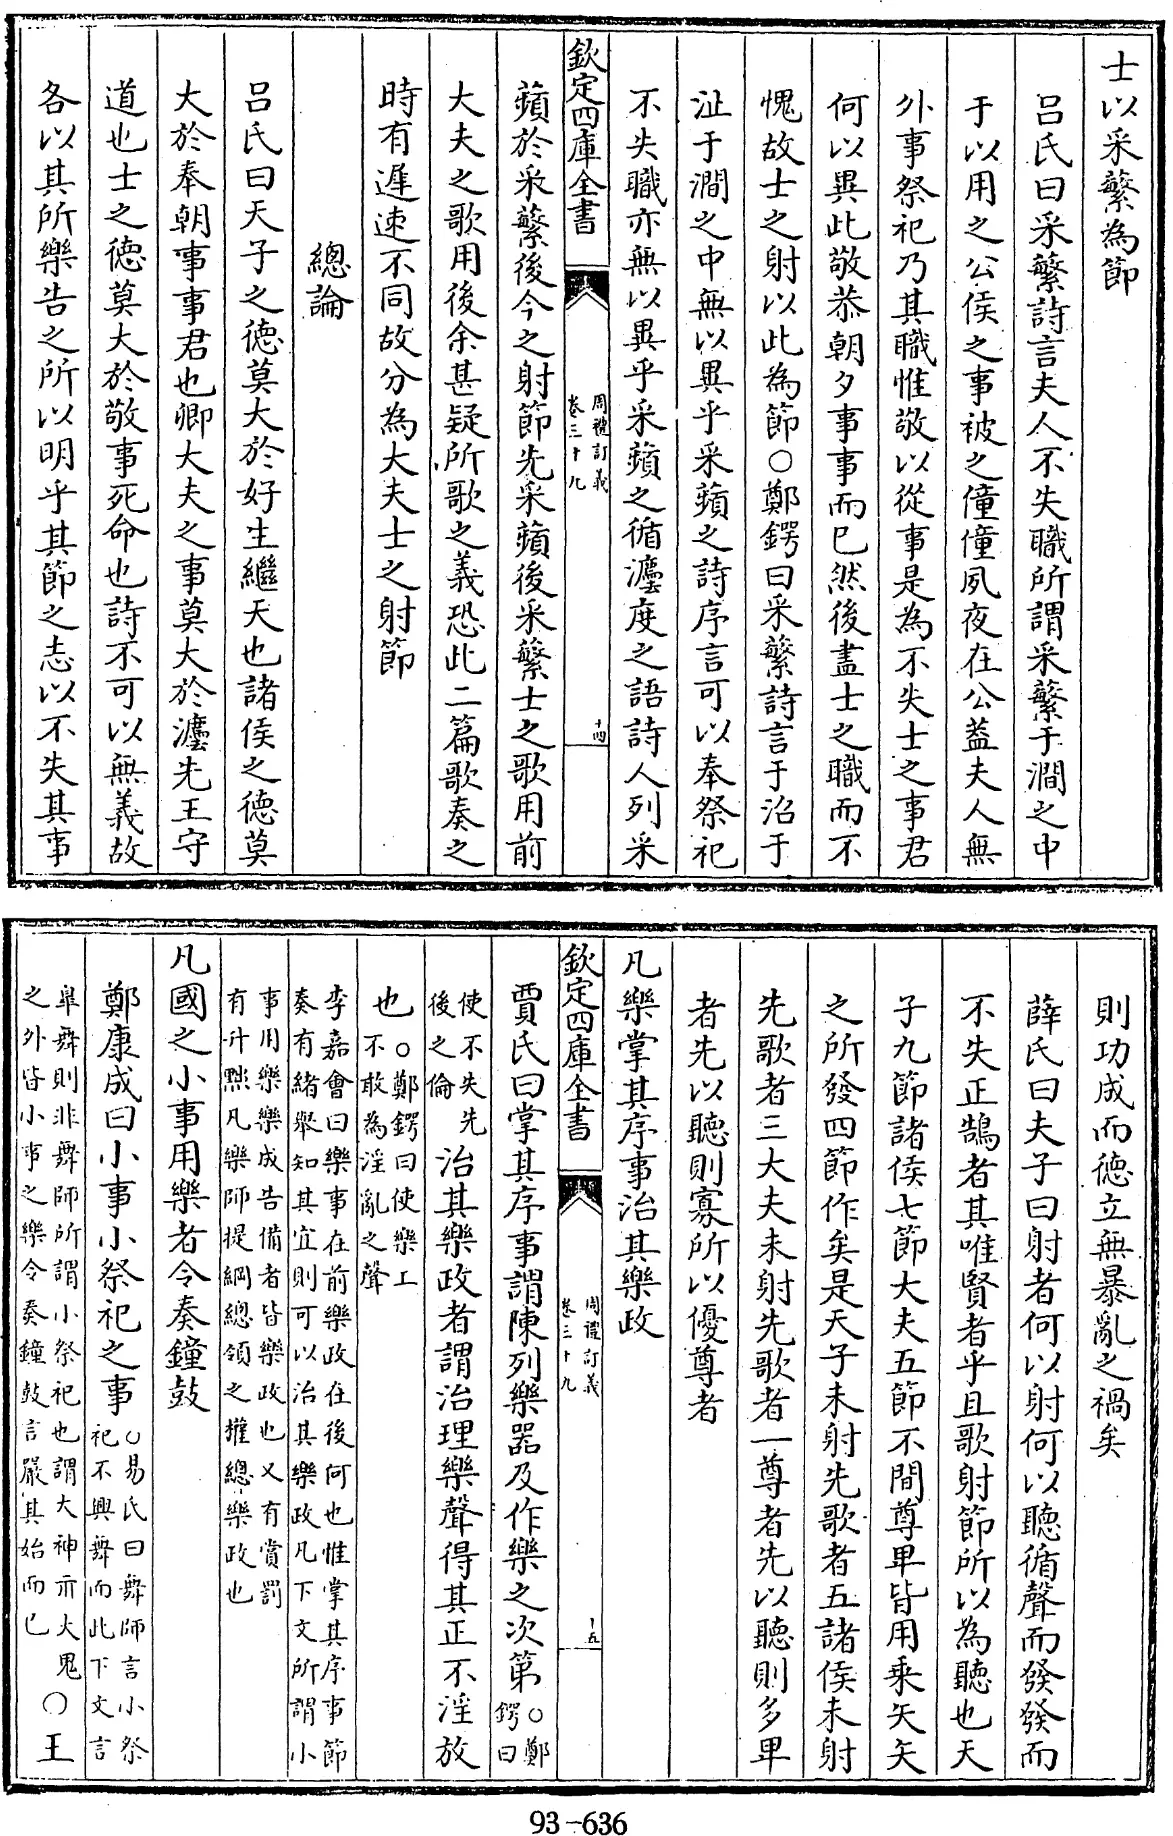 士以采蘩為節
呂氏曰采蘩詩言夫人不失職所謂采蘩于澗之中
于以用之公侯之事被之僮僮夙夜在公葢夫人無
外事祭祀乃其職惟敬以從事是為不失士之事君
何以異此敬恭朝夕事事而已然後盡士之職而不
愧故士之射以此為節○鄭鍔曰采蘩詩言于沼于
沚于澗之中無以異乎采蘋之詩序言可以奉祭祀
不失職亦無以異乎采蘋之循灋度之語詩人列采
欽定四庫全書
周禮訂義
卷三十九
十四
蘋於采蘩後今之射節先采蘋後采蘩士之歌用前
大夫之歌用後余甚疑所歌之義恐此二篇歌奏之
時有遲速不同故分為大夫士之射節
總論
呂氏曰天子之德莫大於好生繼天也諸侯之德莫
大於奉朝事事君也卿大夫之事莫大於灋先王守
道也士之德莫大於敬事死命也詩不可以無義故
各以其所樂告之所以明乎其節之志以不失其事
則功成而德立無暴亂之禍矣
薛氏曰夫子曰射者何以射何以聽循聲而發發而
不失正鵠者其唯賢者乎且歌射節所以為聽也天
子九節諸侯七節大夫五節不間尊卑皆用乘矢矢
之所發四節作矣是天子未射先歌者五諸侯未射
先歌者三大夫未射先歌者一尊者先以聽則多卑
者先以聽則寡所以優尊者
凡樂掌其序事治其樂政
欽定四庫全書
周禮訂義
卷三十九
十五
賈氏曰掌其序事謂陳列樂器及作樂之次第○鄭鍔曰
使不失先後之倫治其樂政者謂治理樂聲得其正不淫放
也○鄭鍔曰使樂工不敢為淫亂之聲
李嘉會曰樂事在前樂政在後何也惟掌其序事節
奏有緒舉知其宜則可以治其樂政凡下文所謂小
事用樂樂成告備者皆樂政也又有賞罰
有升黜凡樂師提綱總領之權總樂政也
凡國之小事用樂者令奏鐘鼓
鄭康成曰小事小祭祀之事○易氏曰舞師言小祭祀不興舞而此下文言
皐舞則非舞師所謂小祭祀也謂大神示大鬼之外皆小事之樂令奏鐘鼓言嚴其始而已○王
93-636